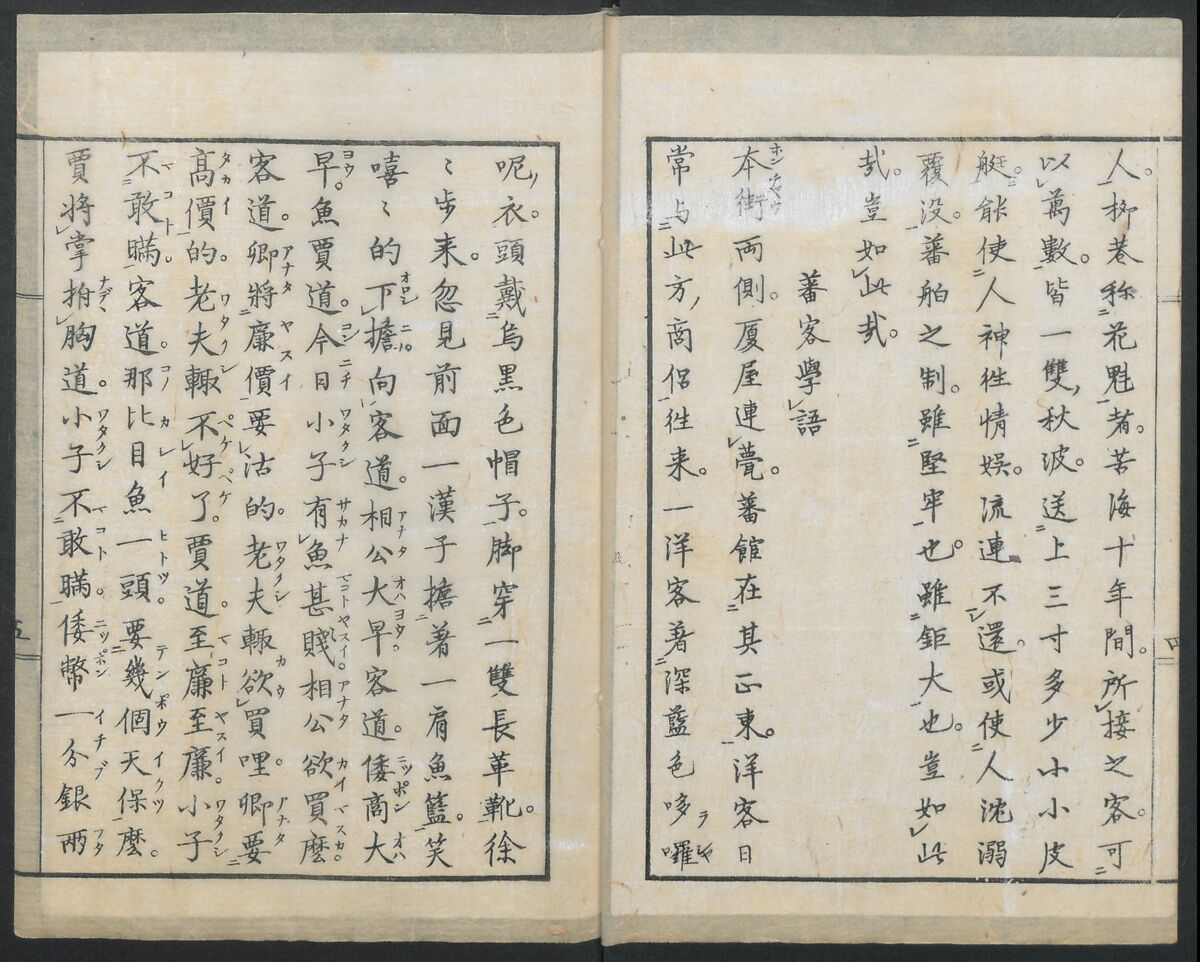 人。柳巷称花魁者。苦海十年間。所接之客。可
以萬數。皆一雙秋波。送上三寸多少小小皮
艇。能使人神徃情娯。流連不還。或使人沈溺
覆没。蕃舶之制。雖堅牢也。雖鉅大也。豈如此
哉。豈如此哉。
蕃客學語
本街両側。厦屋連甍。蕃館在其正東。洋客日
常与此方商侶徃来。一洋客著深藍色哆囉
呢衣。頭戴烏黒色帽子。脚穿一雙長革靴。徐
〻歩来。忽見前面一漢子擔著一肩魚籃。笑
嘻〻的下擔向客道。相公大早。客道。倭商大
早。魚賈道。今日小子有魚甚賤。相公欲買麼。
客道。卿將廉價要沽的。老夫輙欲買哩。卿要
高價的老夫輙不好了。賈道。至廉至廉。小子
不敢瞞。客道。那比目魚一頭。要幾個天保麼。
賈將掌拊胸道。小子不敢瞞。倭幣一分銀兩
四
五